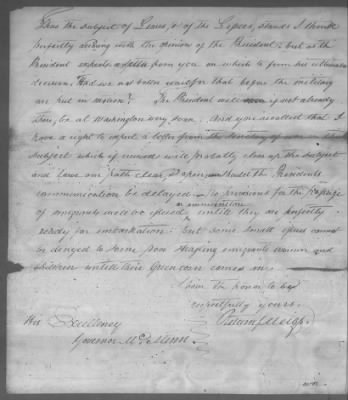 Thus the subject of Lenies, & of the Lessees, stands I think
perfectly according with the opinion of the President; but as the
President expects a letter from you on which to form his ultimate
decision. Had we not better wait for that before the military
are put in motion? The President will now if not already
there, be at Washington very soon. And you recollect that I
have a right to expect a letter from the Secretary of war on this
subject which if received will probably clear up the subject
and leave our path clear, & open, unless the Presidents
communication be delayed. No provisions for the
of emigrants will be issued or ammunition untill they are perfectly
ready for embarkation; but some small issues cannot
be denied to some poor starving emigrants women and
children untill their Green corn comes in
I have the honor to be
respectfully yours.
His Excellency
Return J Meigs.
Governor McMinn
over